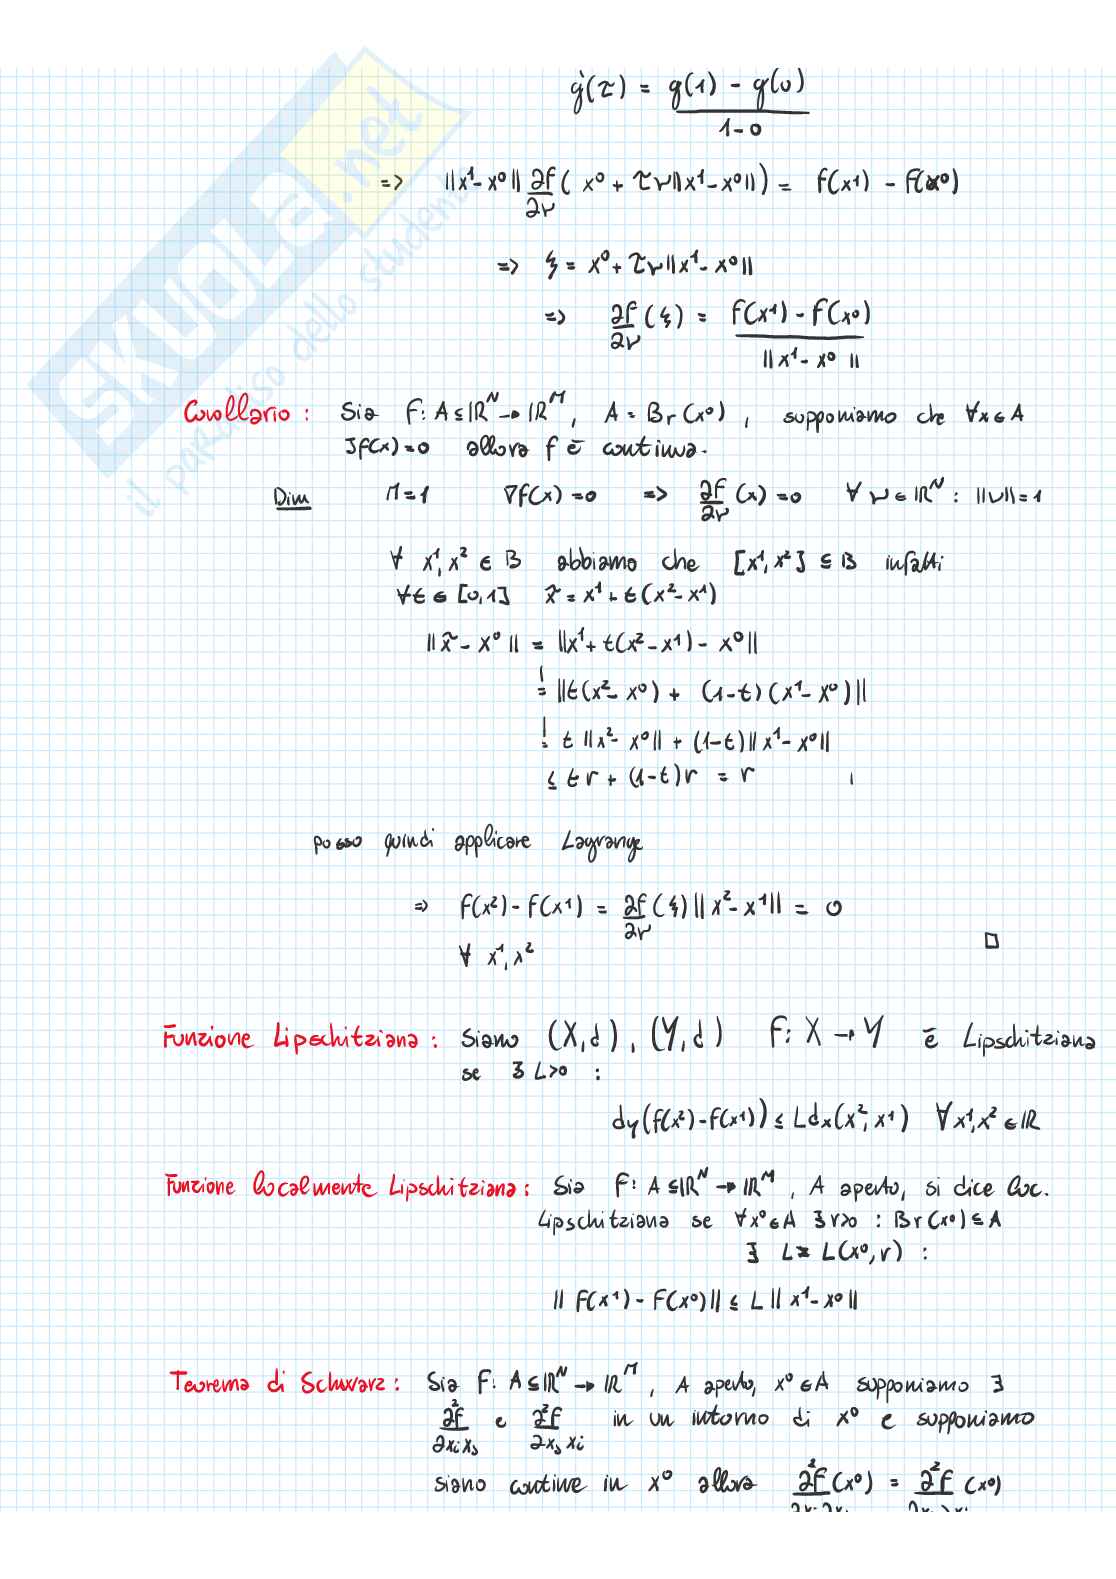 g'(τ) = g(1) - g(0) / 1-0
=> ||x¹-x⁰|| ∂f/∂ν ( x⁰ + τν||x¹-x⁰||) = f(x¹) - f(x⁰)
=> ξ = x⁰ + τν||x¹-x⁰||
=> ∂f/∂ν (ξ) = f(x¹) - f(x⁰) / ||x¹-x⁰||
Corollario : Sia f: A ⊆ ℝᴺ → ℝᴹ, A = Br(x⁰), supponiamo che ∀x ∈ A
Jf(x)=0 allora f è continua.
Dim M=1 ∇f(x)=0 => ∂f/∂ν (x)=0 ∀ ν ∈ ℝᴺ : ||ν||=1
∀ x¹, x² ∈ B abbiamo che [x¹, x²] ⊆ B infatti
∀t ∈ [0,1] x̃ = x¹ + t(x²-x¹)
||x̃ - x⁰|| = ||x¹+ t(x²-x¹) - x⁰||
= ||t(x²-x⁰) + (1-t)(x¹-x⁰)||
t ||x²-x⁰|| + (1-t)||x¹-x⁰||
≤ t r + (1-t) r = r
posso quindi applicare Lagrange
=> f(x²) - f(x¹) = ∂f/∂ν (ξ) ||x²-x¹|| = 0
∀ x¹, x² □
Funzione Lipschitziana : Siano (X,d), (Y,d) f: X → Y è Lipschitziana
se ∃ L>0 :
dy(f(x²)-f(x¹)) ≤ L dx(x², x¹) ∀x¹,x² ∈ ℝ
Funzione localmente Lipschitziana : Sia f: A ⊆ ℝᴺ → ℝᴹ, A aperto, si dice loc.
Lipschitziana se ∀x⁰∈A ∃ r>0 : Br(x⁰) ⊆ A
∃ L = L(x⁰, r) :
|| f(x¹) - f(x⁰)|| ≤ L || x¹-x⁰||
Teorema di Schwarz : Sia f: A ⊆ ℝᴺ → ℝᴹ, A aperto, x⁰ ∈ A supponiamo ∃
∂²f/∂xi xj e ∂²f/∂xj xi in un intorno di x⁰ e supponiamo
siano continue in x⁰ allora ∂²f/∂xi ∂xj (x⁰) = ∂²f/∂xj ∂xi (x⁰)
SKUOLA.net
il paradiso dello studente